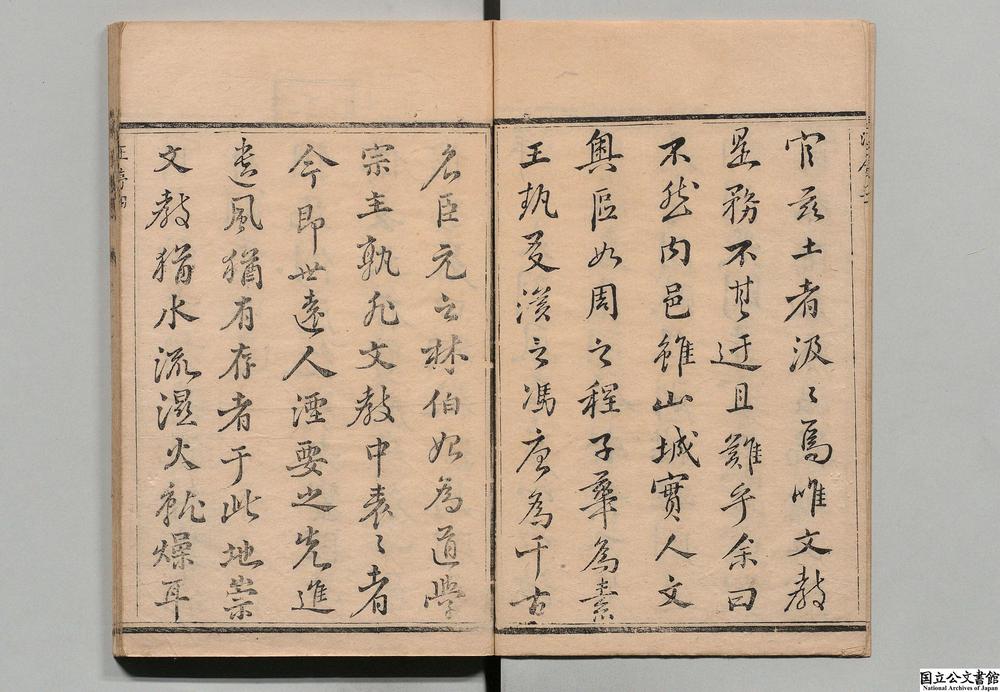 官茲土者汲〻焉唯文教
是務不其迂且難乎余曰
不然內邑雖山城實人文
奧區如周之程子華為素
王執友漢之馮唐為千古
名臣元之林伯始為道學
宗主孰非文教中表〻者
今即世遠人湮要之先進
遺風猶有存者于此地崇
文教猶水流濕火就燥耳
国立公文書館
National Archives of Japan